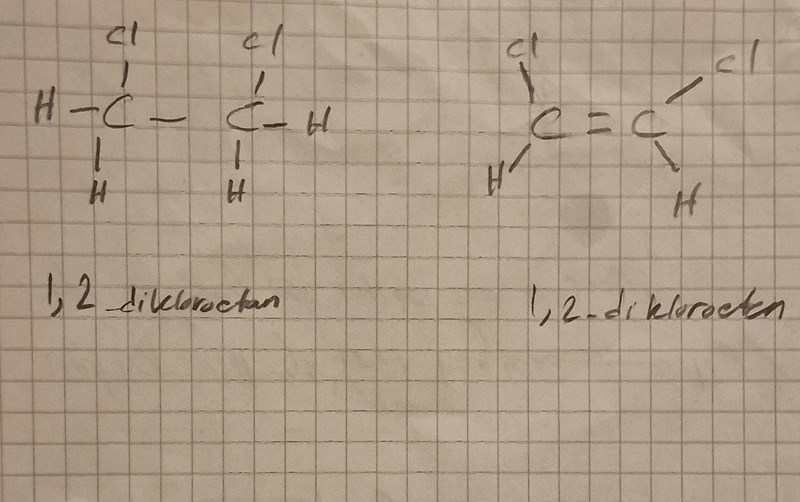 Cl Cl
H - C - C - H
H H
Cl Cl
C = C
H H
1,2-dikloroetan
1,2-dikloroeten